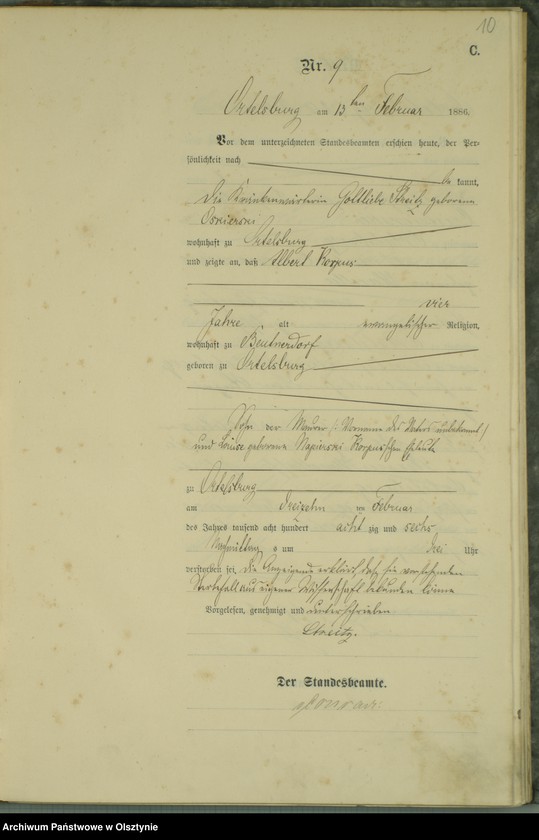 10
C.
Nr. 9
Ortelsburg am 13 ten Februar 1886.
Vor dem unterzeichneten Standesbeamten erschien heute, der Per-
sönlichkeit nach
be kannt,
die Krankenwärterin Gottliebe Streitz geborene
wohnhaft zu Ortelsburg
und zeigte an, daß Albert Korpus
vier
Jahre alt evangelischer Religion,
wohnhaft zu Beutnerdorf
geboren zu Ortelsburg
Sohn der Maurer /: Vorname des Vaters unbekannt /
und Louise geborene Napierski Korpus'schen Eheleute
zu Ortelsburg
am dreizehn ten Februar
des Jahres tausend acht hundert acht zig und sechs
Nachmittag s um drei Uhr
verstorben sei, die Anzeigende erklärt daß sie vorstehenden
Sterbefall aus eigener Wissenschaft bekunden könne
Vorgelesen, genehmigt und unterschrieben
Streitz.
Der Standesbeamte.
Archiwum Państwowe w Olsztynie